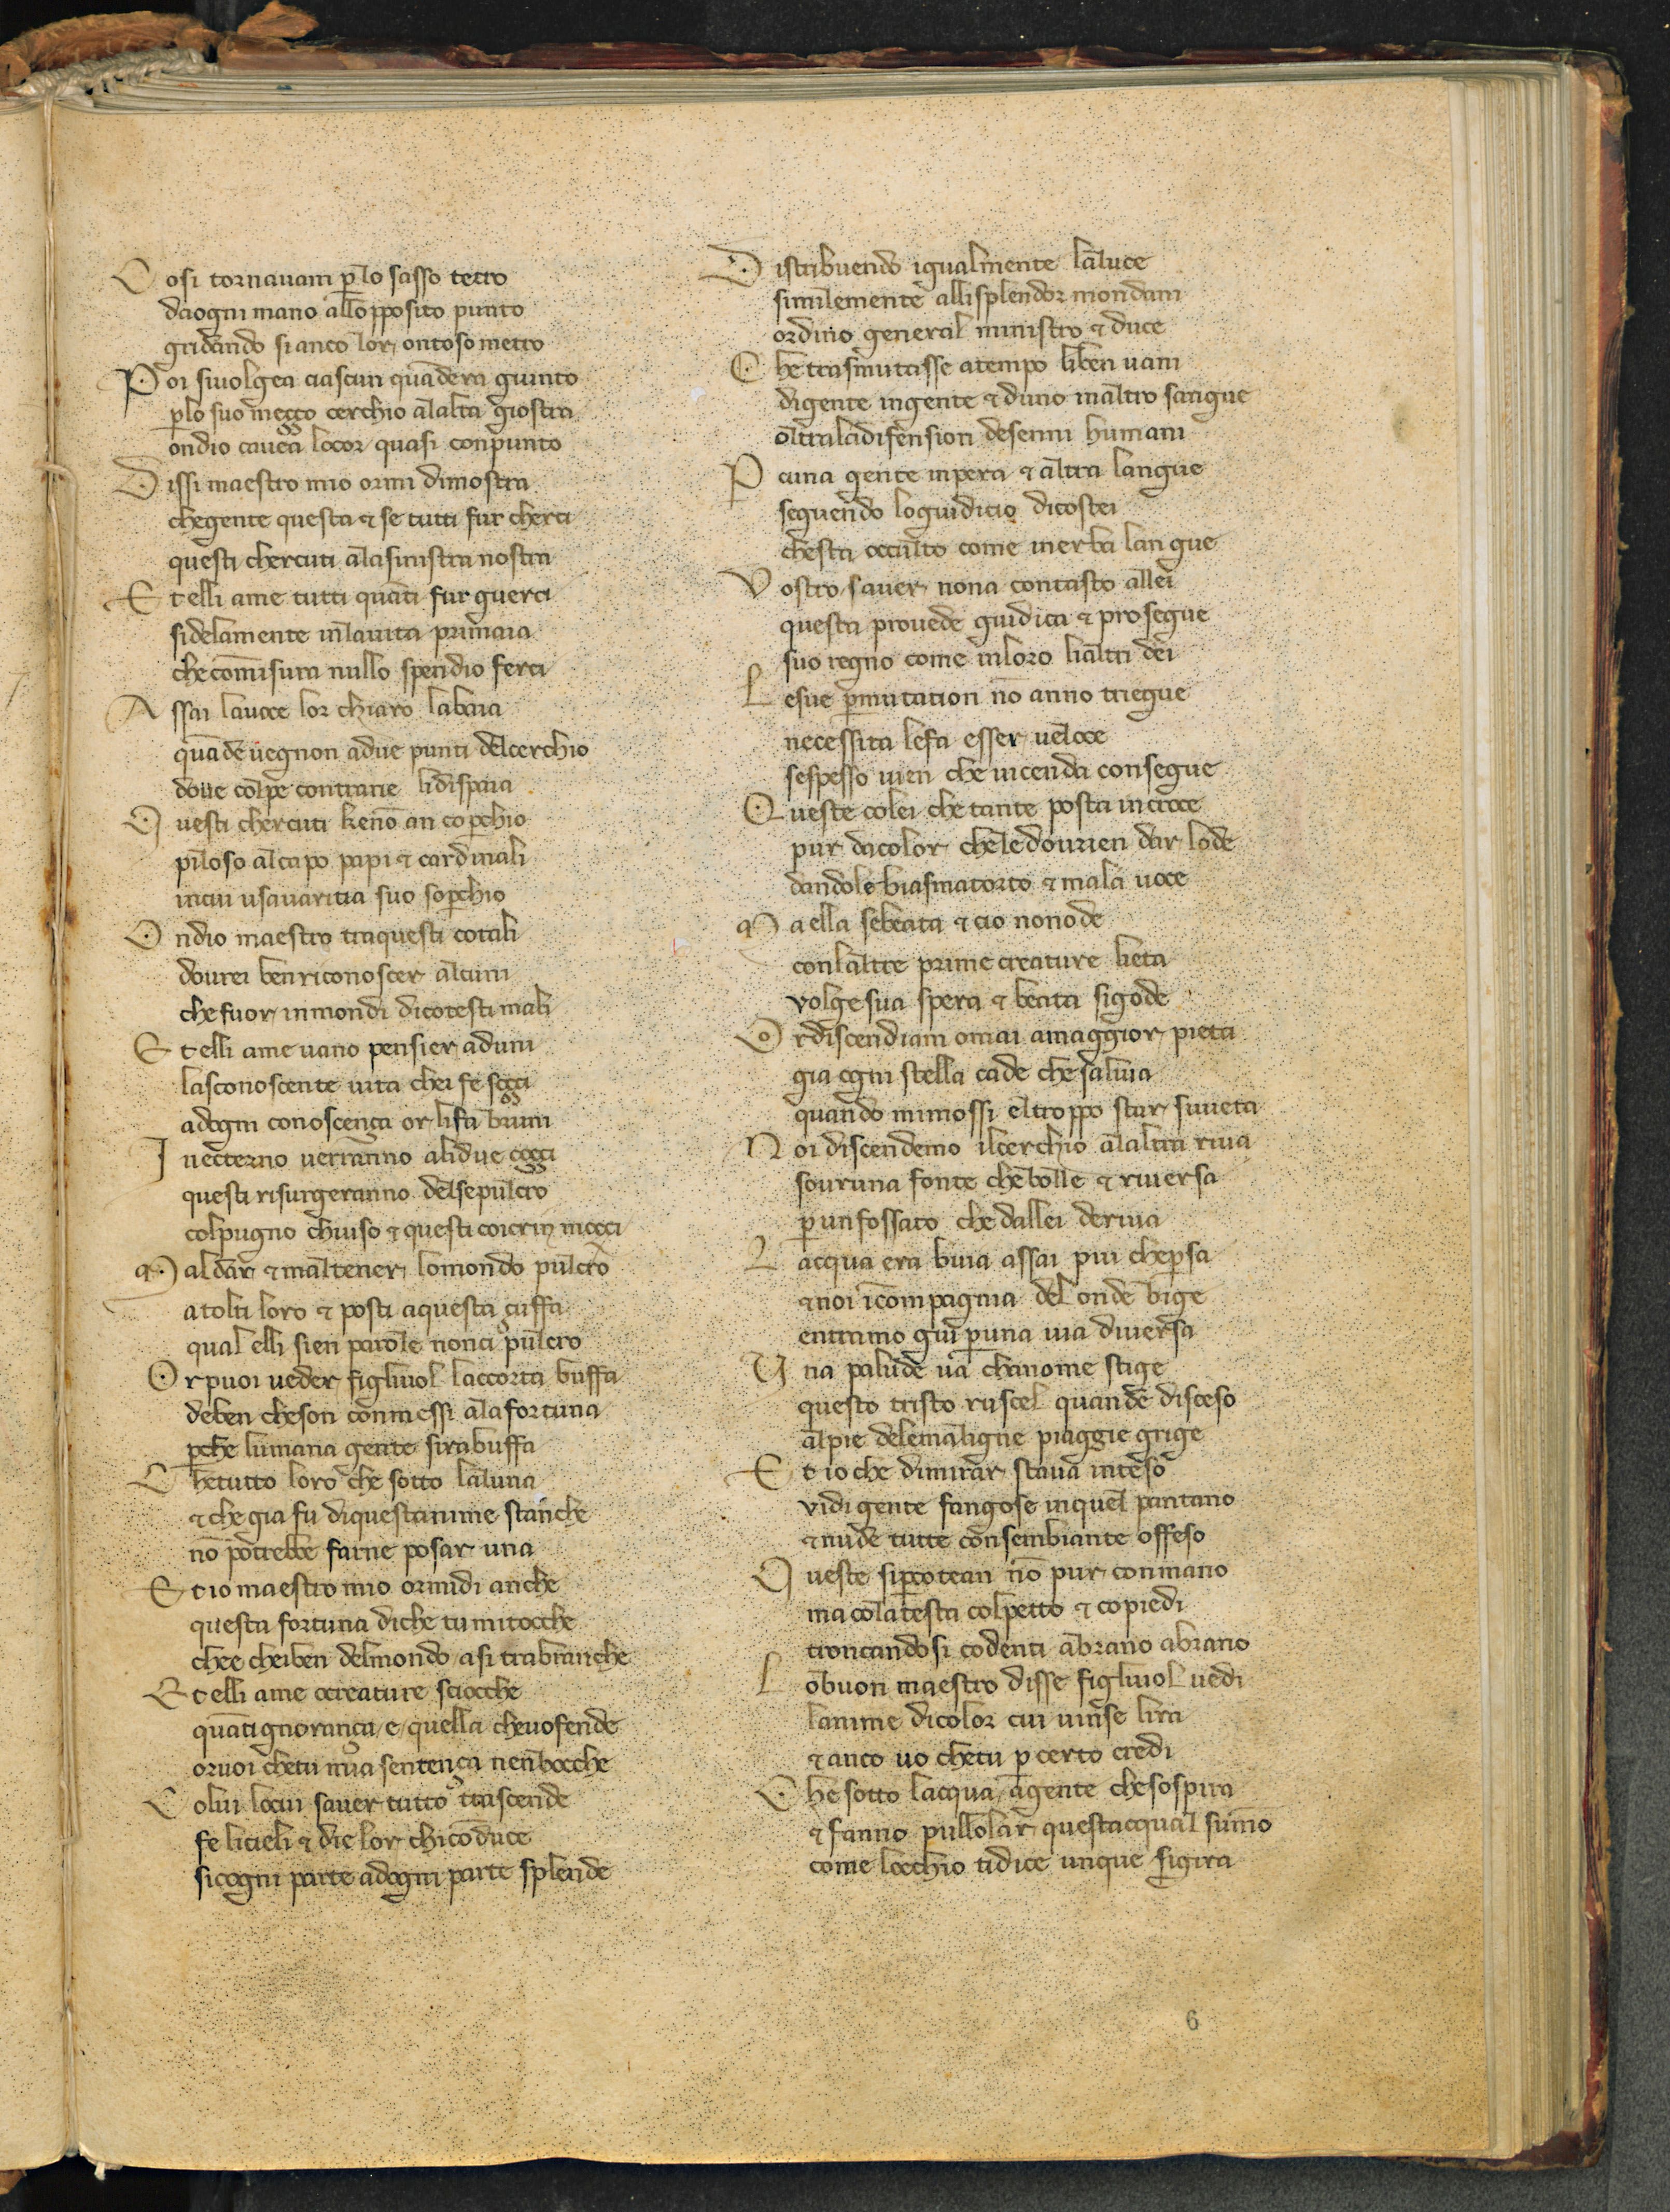 Cosi tornauam ꝑlo sasso tetro
daogni mano allopposito punto
gridando sianco lor ontoso metro
Poi siuolgea ciascun quãdera giunto
ꝑlo suo meçço cerchio alaltra giostra
ondio cauea locor quasi conpunto
Dissi maestro mio ormi dimostra
chegente questa ⁊ se tutti fur cherci
questi chercuti alasinistra nostra
Et elli ame tutti quãti fur guerci
sidelamente inlauita primaia
checomisura nullo spendio ferci
Assai lauoce lor chiaro labaia
quãde uegnon adue punti delcerchio
doue colpe contrarie lidispaia
Questi chercuti kenõ an coꝑchio
piloso alcapo papi ⁊ cardinali
incui usauaritia suo soꝑchio
Ondio maestro traquesti cotali
dourei benriconoscer alcuni
chefuor inmondi dicotesti mali
Et elli ame uano pensier aduni
lasconoscente uita chei fe soçci
adogni conoscença or lifa bruni
Inecterno uerranno alidue coçci
questi risurgeranno delsepulcro
colpugno chiuso ⁊ questi coicrin moçci
Maldar ⁊ maltener lomondo pulcro
atolti loro ⁊ posti aquesta çuffa
qual elli sien parole nonci pulcro
Orpuoi ueder figliuol laccorta buffa
deben cheson conmessi alafortuna
ꝑche lumana gente sirabuffa
Chetutto loro che sotto laluna
⁊ che gia fu diquestanime stanche
nõ potrebbe farne posar una
Et io maestro mio ormidi anche
questa fortuna diche tu mitocche
chee cheiben delmondo asi trabranche
Et elli ame ocreature sciocche
quãtignorança e quella cheuofende
oruoi chetu mia sentença nenbocche
Colui locui sauer tutto trascende
fe licieli ⁊ die lor chicõduce
sicogni parte adogni parte splende
Distribuendo igualmente laluce
similemente allisplendor mondani
ordino general ministro ⁊ duce
Che trasmutasse atempo liben uani
digente ingente ⁊ duno inaltro sangue
oltraladifension desenni humani
Pcuna gente inpera ⁊ altra langue
seguendo loguidicio dicostei
chesta occulto come inerba langue
Vostro sauer nona contasto allei
questa prouede giudica ⁊ prosegue
suo regno come inloro lialtri dei
Lesue ꝑmutation nõ anno triegue
necessita lefa esser ueloce
sespesso uien che uicenda consegue
Queste colei che tante posta incroce
pur dacolor cheledourien dar lode
dandole biasmatorto ⁊ mala uoce
Maella sebeata ⁊ cio nonode
conlaltre prime creature lieta
volgesua spera ⁊ beata sigode
Ordiscendiam omai amaggior pieta
gia ogni stella cade chesaliua
quando mimossi eltroppo star siuieta
Noi discendemo ilcerchio alaltra riua
souruna fonte chebolle ⁊ riuersa
ꝑunfossato che dallei deriua
Lacqua era buia assai piu cheꝑsa
⁊noi ĩcompagnia del onde bige
entrãmo giu ꝑuna uia diuersa
Una palude ua chanome stige
questo tristo ruscel quande disceso
alpie delemaligne piaggie grige
Et io che dimirar staua inteso
vidi gente fangose inquel pantano
⁊nude tutte consembiante offeso
Queste siꝑcotean nõ pur conmano
ma cõlatesta colpetto ⁊ copiedi
troncandosi codenti abrano abrano
Lobuon maestro disse figliuol uedi
lanime dicolor cui uinse lira
⁊ anco uo chetu ꝑ certo credi
Che sotto lacqua agente chesospira
⁊ fanno pullolar questacqual summo
come locchio tidice unque sigira
6